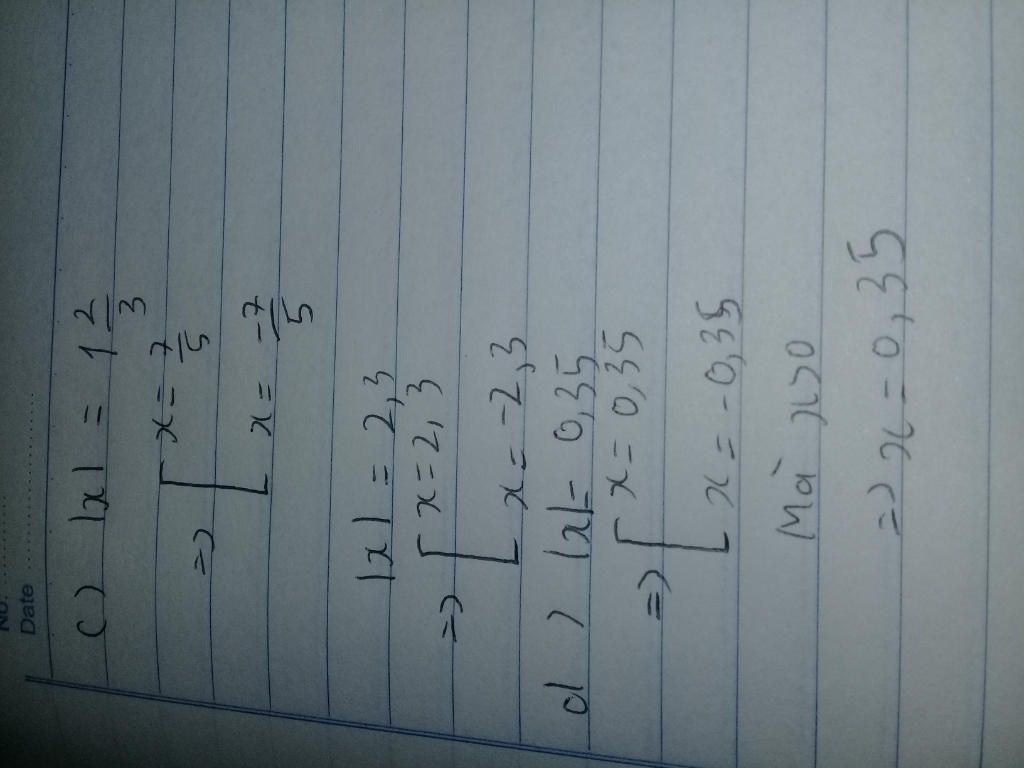 No. ............
Date ............
c) |x| = 1 2/3
=> [ x = 7/5
[ x = -7/5
|x| = 2,3
=> [ x = 2,3
[ x = -2,3
d) |x| = 0,35
=> [ x = 0,35
[ x = -0,35
Mà x>0
=> x = 0,35